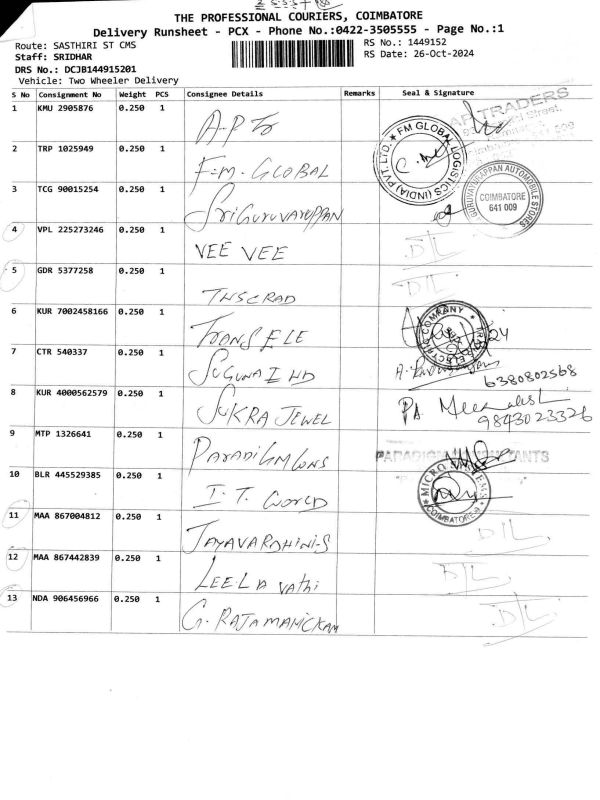 THE PROFESSIONAL COURIERS, COIMBATORE
Delivery Runsheet - PCX - Phone No.:0422-3505555 - Page No.:1
Route: SASTHIRI ST CMS
RS No.: 1449152
Staff: SRIDHAR
RS Date: 26-Oct-2024
DRS No.: DCJB144915201
Vehicle: Two Wheeler Delivery
S No Consignment No Weight PCS Consignee Details Remarks Seal & Signature
1 KMU 2905876 0.250 1 A-P Tr
AP TRADERS
2 TRP 1025949 0.250 1 F-M-GLOBAL
FM GLOBAL LOGISTICS (INDIA) PVT. LTD.
3 TCG 90015254 0.250 1 SriGuruvayuppan
GURUVAYURAPPAN AUTOMOBILE STORES
COIMBATORE
641 009
4 VPL 225273246 0.250 1 VEE VEE D/L
5 GDR 5377258 0.250 1 TNSCRAD D/L
6 KUR 7002458166 0.250 1 TRANS ELE
7 CTR 540337 0.250 1 SUGUNA IND
6380802568
8 KUR 4000562579 0.250 1 SUKRA JEWEL
9843023326
9 MTP 1326641 0.250 1 PARADIGM CONS
10 BLR 445529385 0.250 1 I.T. WORLD
MICRO SYSTEMS
COIMBATORE-9
11 MAA 867004812 0.250 1 JAYAVARDHINI-S D/L
12 MAA 867442839 0.250 1 LEELA vathi D/L
13 NDA 906456966 0.250 1 G. RAJAMANICKAM D/L